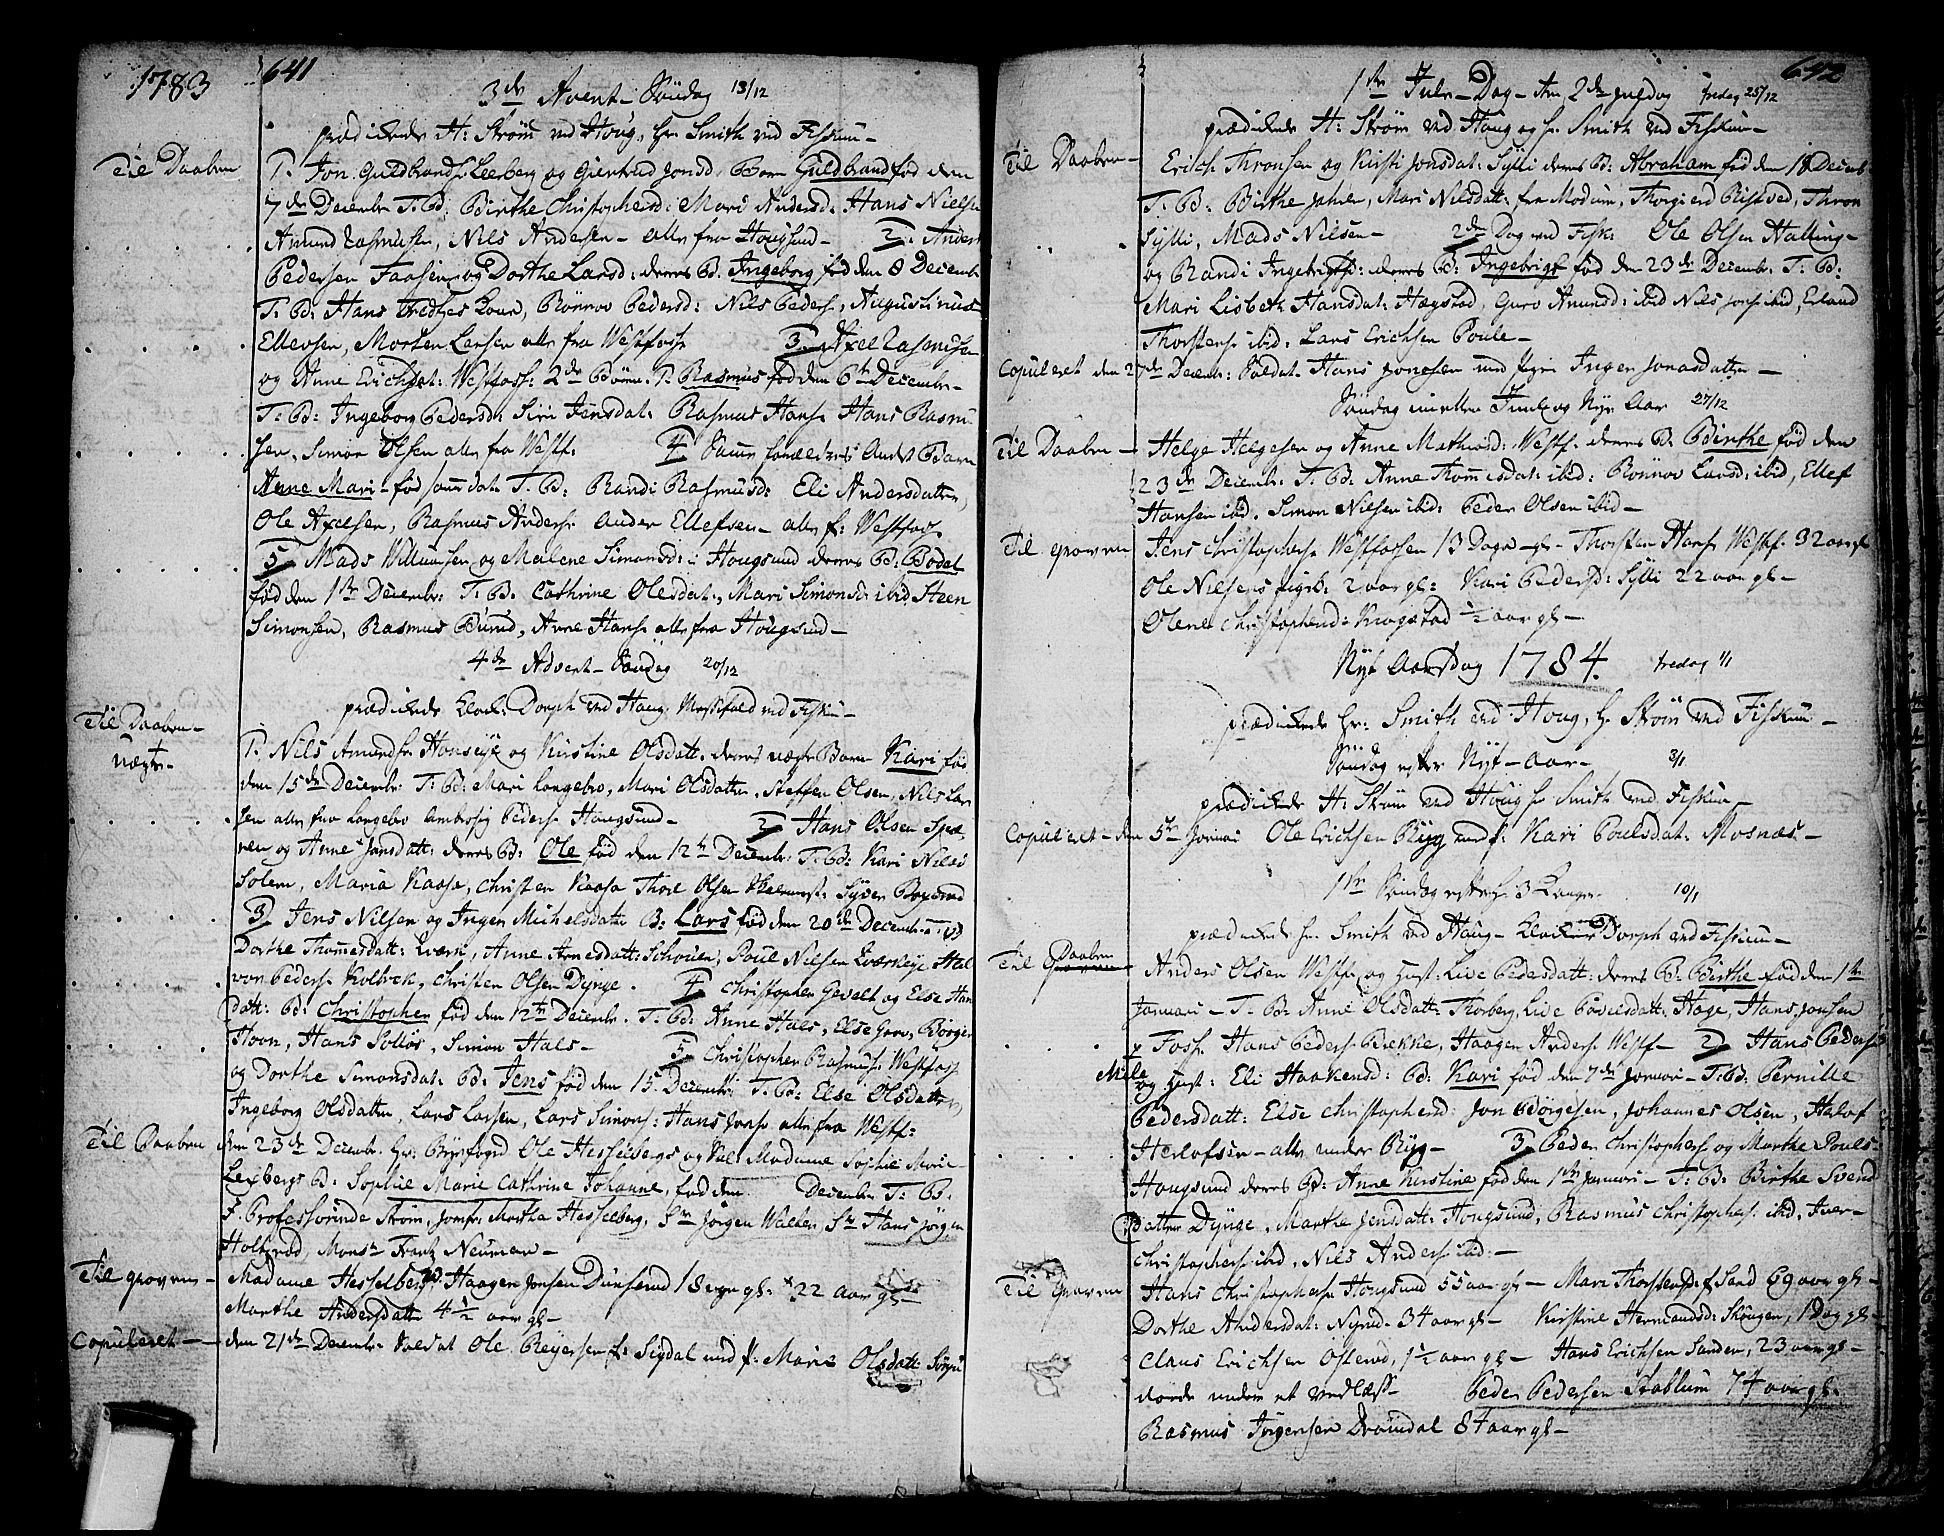 1783
641
3de Advent-Söndag 13/12
prædikede H: Ström ved Houg, hr. Smith ved Fiskum-
Til Daaben
1. Jon Guldbrands. Leeberg og Giertrud Jonsd. Barn Guldbrand fød dem
7de Decembr T. B: Birthe Christophersd: Mari Andersd: Hans Nielse
Amund Rasmussen, Nils Andersen - alle fra Hougsund - 2. Anders
Pedersen Faasen og Dorthe Larsd: deres B. Ingeborg fød den 8 Decembr
T. B: Hans Lour, Rönnov Pedersd: Nils Peders, Augustinus
Ellevsen, Morten Larsen alle fra Westfoss 3. Axel Rasmusen
og Anne Erichsdat: Westfoss: 2de Börn: 1. Rasmus fød den 6te Decembr-
T. B: Ingeborg Pedersd: Siri Jensdat: Rasmus Hans: Hans Rasmu
sen, Simon Olsen alle fra Westf: 4 Samme forældres Andet Barn
Anne Mari - fød samme dat: T. B: Randi Rasmusd: Eli Andersdatter,
Ole Axelsen, Rasmus Anders: Ander Ellefsen - alle f: Westfoss
5 Mads Willumsen og Malene Simonsd: i Hougsund deres B: Bodel
fød den 1te Decembr: T. B. Cathrine Olesdat:, Mari Simonsd: ibid Steen
Simonsen, Rasmus Bund, Anne Hans: alle fra Hougsund-
4de Advent-Söndag 20/12
prædikede Klock: Dorph ved Houg. Messefald ved Fiskum-
Til Daaben-
Uægte-
1. Nils Amunds: og Kirstine Olsdatt: deres uægte Barn Kari fød
den 15de Decembr. T. B: Mari Langebro, Mari Olsdatter, Steffen Olsen, Nils Lar
sen alle fra Langebro Peders: Hougsund- 2 Hans Olsen
og Anne Jansdatt: deres B: Ole fød den 12te Decembr: T. B: Kari Nilsd
Solem, Maria Kaasa, Christen Kaasa Thore Olsen
3 Jens Nilsen og Inger Michelsdatt: B: Lars fød den 20de Decembr: T. B
Dorthe Thommesdatt: Anne Arnesdatt: Schouen, Poul Nilsen Hal
vor Peders: Kolbrek, Christen Olsen Dynge. 4 Christopher Gevelt og Else Han
datt: B: Christopher fød den 12te Decembr. T. B: Anne Hals, Else Börger
Hoen, Hans Sollös, Simon Hals- 5 Christopher Rasmus: Westfoss
og Dorthe Simonsdat: B: Jens fød den 15 Decembr: T. B: Else Olsdatter
Ingeborg Olsdatter, Lars Larsen, Lars Simons: Hans alle fra Westf:
Til Daaben
den 23de Decembr. Hr: Byefoged Ole Hesselbergs og Sal: Madame Sophie Marie
Lexbergs B: Sophie Marie Cathrine Johanne, fød den Decembr T: B:
F: Professorinde Ström, Jomfr: Martha Hesselberg, Sr Jörgen Walker, Sr Hans Jörgen
Holterod, Monsr Frantz Neuman-
Til Graven-
Madame Hesselberg. Haagen Jensen Dunserud 18 uger gl: 22 aar gl-
Marthe Andersdatt: 4 1/2 aar gl-
Copuleret-
den 21de Decembr. Soldat Ole Reyersen f: Sigdal med P: Marie Olsdatt:
642
1ste Jule-Dag - Item 2den Juledag fredag 25/12
prædikede H: Ström ved Houg og hr Smith ved Fiskum-
Til Daaben-
Erich Thronsen og Kirsti Jonsdat: Sylli deres B: Abraham fød den 18 Decemb
T. B: Birthe Jahren, Mari Nilsdatt: fra Modum, Thorgierd Ristved, Thron
Sylli, Mads Nilsen- 2den Dag ved Fisk: Ole Olsen Halling-
og Randi Ingebrigtsd: deres B: Ingebrigt fød den 23de Decembr: T. B:
Mari Lisbeth Hansdat: Hægstad, Guro Amunsd: ibid Nils Jons: ibid, Erland
Thorstens: ibid: Lars Erichsen Poule-
Copuleret den 27de Decembr: Soldat Hans Jonassen med Pigen Inger Jonasdatter-
Söndag imellem Juul og Nyt Aar 27/12
Til Daaben-
Helge Helgesen og Anne Mathiæsd: Westf: deres B. Birthe fød den
23de Decembr: T. B: Anne Thommesdat: ibid: Rönnov Larsd: ibid, Ellef
Hansen ibid. Simon Nilsen ibid: Peder Olsen ibid-
Til Graven
Jens Christophers: Westfossen 13 Dage gl- Thorsten Hans: Westf. 32 aar gl
Ole Nilsens Pigeb: 2 aar gl: Kari Pedersd: Sylli 22 aar gl-
Olene Christophersd: Krogstad 1/2 aar gl-
Nyt Aars Dag 1784. fredag 1/1
prædikede Hr: Smith ved Houg, H. Ström ved Fiskum-
Söndag efter Nyt-aar- 3/1
prædikede H: Ström ved Houg hr Smith ved Fiskum-
Copuleret- den 5te Januar Ole Erichsen Ryg med P: Kari Poulsdat: Mosnæs-
1ste Söndag efter H: 3 Konger 10/1
prædikede hr Smith ved Houg- Klocker Dorph ved Fiskum-
Til Daaben
Anders Olsen Westf: og Hust: Live Pedersdatt: deres B: Birthe fød den 1te
Januari- T. B: Anne Olsdatt: Thorberg, Live Povelsdatt, Hage, Hans Jonsen
Foss. Hans Peders: Brekke, Haagen Anders: Westf- 2 Hans Peders:
Mile og Hust: Eli Haakensd: B: Kari fød den 7de Januari- T. B: Pernille
Pedersdatt: Else Christophersd: Jon Börgesen, Johannes Olsen, Halvor
Herlofsen- alle under Ryg- 3 Peder Christophers: og Marthe Pouls
Hougsund deres B: Anne Kirstine fød den 1te Januari- T. B: Birthe Svend
datter Dynge, Marthe Jensdatt: Hougsund, Rasmus Christophers: ibid, Iver-
Christophers: ibid, Nils Anders: ibid:-
Til Graven
Hans Christophers: Hougsund 55 aar gl- Mari Thorstensd: f. Sand 69 aar gl-
Dorthe Andersdat: Nyrud. 34 aar gl- Kirstine Hermandsd: Skougen, 1 Dag gl-
Claus Erichsen Österud, 1 1/2 aar gl- Hans Erichsen Sanden, 23 aar gl-
døde under et vedlæss- Peder Pedersen Stablum 74 aar gl-
Rasmus Jörgensen Drömdal 84 aar gl-